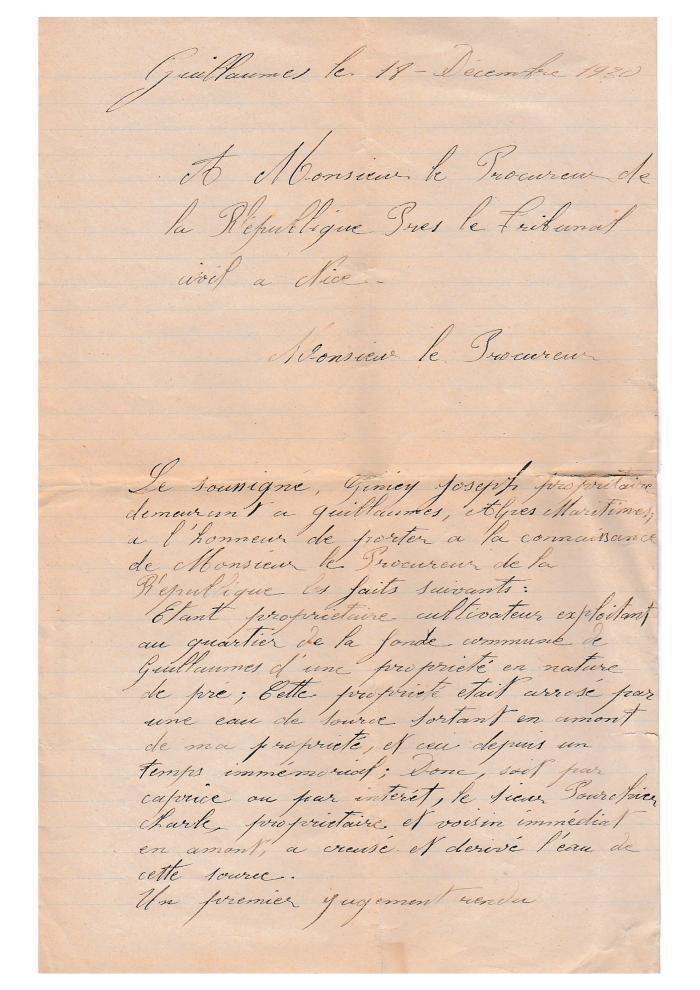 Guillaumes le 18 - Décembre 1930
A Monsieur le Procureur de
la République Pres le Tribunal
civil a Nice -
Monsieur le Procureur
Le soussigné, Giniey Joseph propritaire
demeurant a Guillaumes, Alpes Maritimes,
a l'honneur de porter a la connaissance
de Monsieur le Procureur de la
République les faits suivants :
Etant proprietaire cultivateur exploitant
au quartier de la fonde commune de
Guillaumes d'une proprieté en nature
de pré ; Cette proprieté etait arrosé par
une eau de source sortant en amont
de ma proprieté, et ceci depuis un
temps immémorial ; Donc, soit par
caprice ou par interêt, le sieur Pourchier
Charle, proprietaire et voisin immédiat
en amont, a creusé et derivé l'eau de
cette source.
Un premier jugement rendu